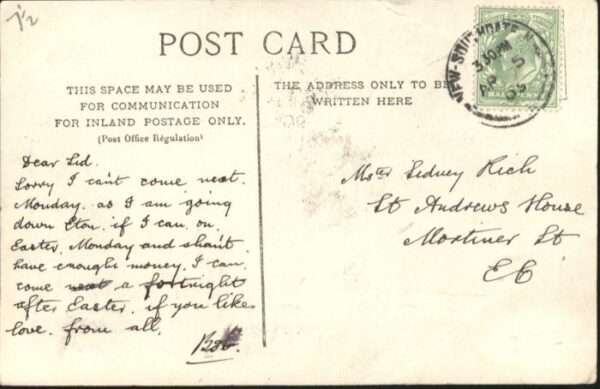 1/2
POST CARD
THIS SPACE MAY BE USED
FOR COMMUNICATION
FOR INLAND POSTAGE ONLY.
(Post Office Regulation)
THE ADDRESS ONLY TO BE
WRITTEN HERE
NEW-SOUTHGATE
3.30PM
AP 5
Dear Sid.
Sorry I can't come next.
Monday. as I am going
down Eton. if I can. on.
Easter. Monday and shan't
have enough money. I can.
come next a fortnight
after Easter. if you like
love. from all.
Bob.
Mstr Sidney Rich
St Andrews House
Mortimer St
E C